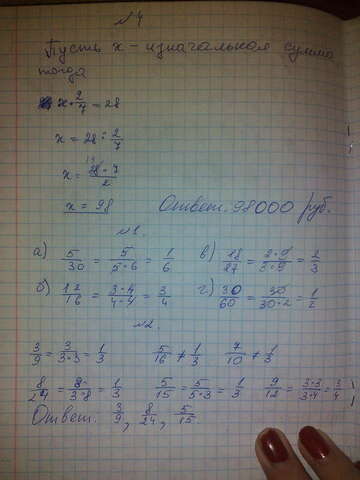 №4
Пусть x - изначальная сумма
тогда
x · 2/7 = 28
x = 28 : 2/7
x = 28 · 7 / 2
x = 98 Ответ. 98000 руб.
№1.
а) 5/30 = 5/5·6 = 1/6 в) 18/27 = 2·9/3·9 = 2/3
б) 12/16 = 3·4/4·4 = 3/4 г) 30/60 = 30/30·2 = 1/2
№2.
3/9 = 3/3·3 = 1/3 5/16 ≠ 1/3 7/10 ≠ 1/3
8/24 = 8/3·8 = 1/3 5/15 = 5/5·3 = 1/3 9/12 = 3·3/3·4 = 3/4
Ответ: 3/9, 8/24, 5/15.